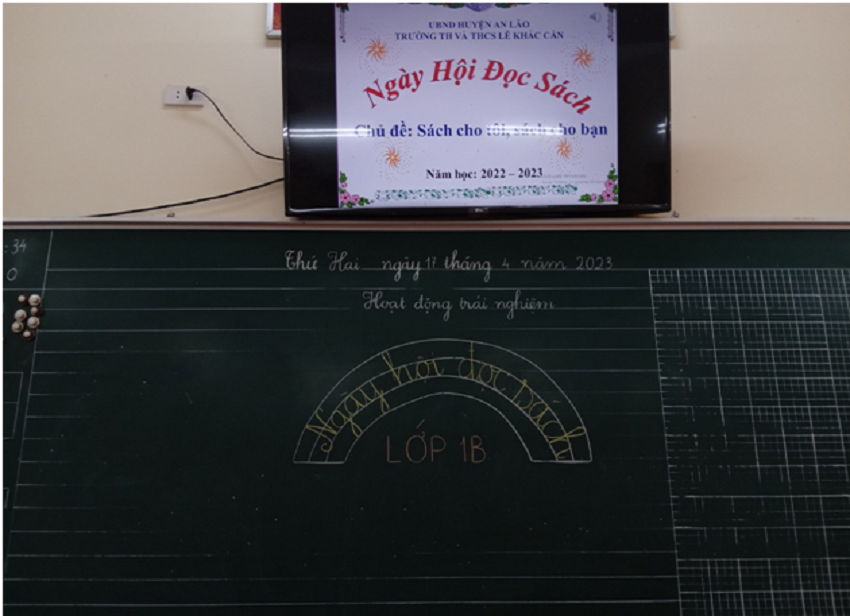 UBND HUYỆN AN LÃO
TRƯỜNG TH VÀ THCS LÊ KHẮC CẨN
Ngày Hội Đọc Sách
Chủ đề: Sách cho tôi, sách cho bạn
Năm học: 2022 – 2023
: 34
0
Thứ Hai ngày 17 tháng 4 năm 2023
Hoạt động trải nghiệm
Ngày hội đọc sách
LỚP 1B